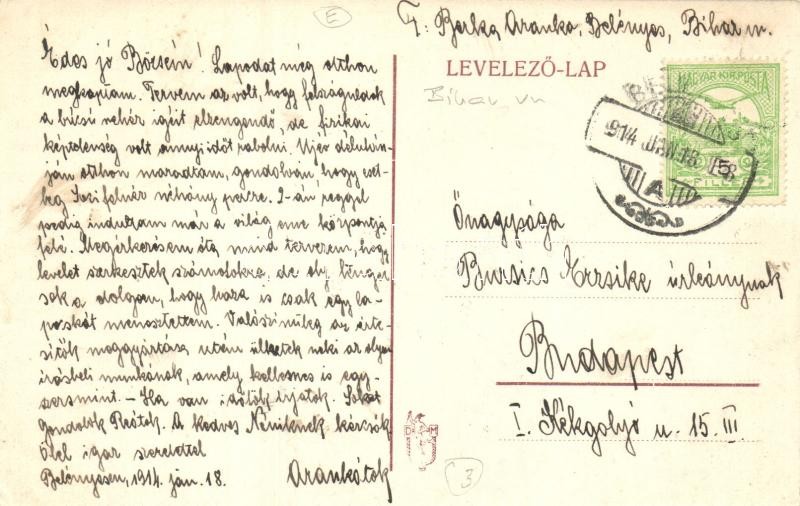 F: Berka Aranka, Belényes, Bihar m.
LEVELEZŐ-LAP
MAGYAR KIR. POSTA
914 JAN. 18.
A
5
FILLÉR
Bihar vm
Édes jó Böcsém! Lapodat még otthon
megkaptam. Tervem az volt, hogy felszáguldok
a búcsú nehéz igéit elzengendő, de fizikai
képtelenség volt annyi időt rabolni. Ujév délután-
ján otthon maradtam, gondolván, hogy eset-
leg néhány percre. 2-án reggel
pedig indultam már a világ eme központja
felé. Megérkezésem óta mind tervezem, hogy
levelet szerkesztek számotokra, de oly tenger
sok a dolgom, hogy haza is csak egy la-
pocskát menesztettem. Valószinűleg az érte-
sitők meggyártása után ülhetek neki az olyan
irásbeli munkának, amely kellemes is egy-
szersmint. – Ha van időtök írjatok. Sokat
gondolok Reátok. A kedves Néniknek kézcsók
Ölel igaz szeretettel
Belényesen, 1914. jan. 18. Arankátok
Őnagysága
Bursics Erzsike úrleánynak
Budapest
I. Kékgolyó u. 15. III
E
3